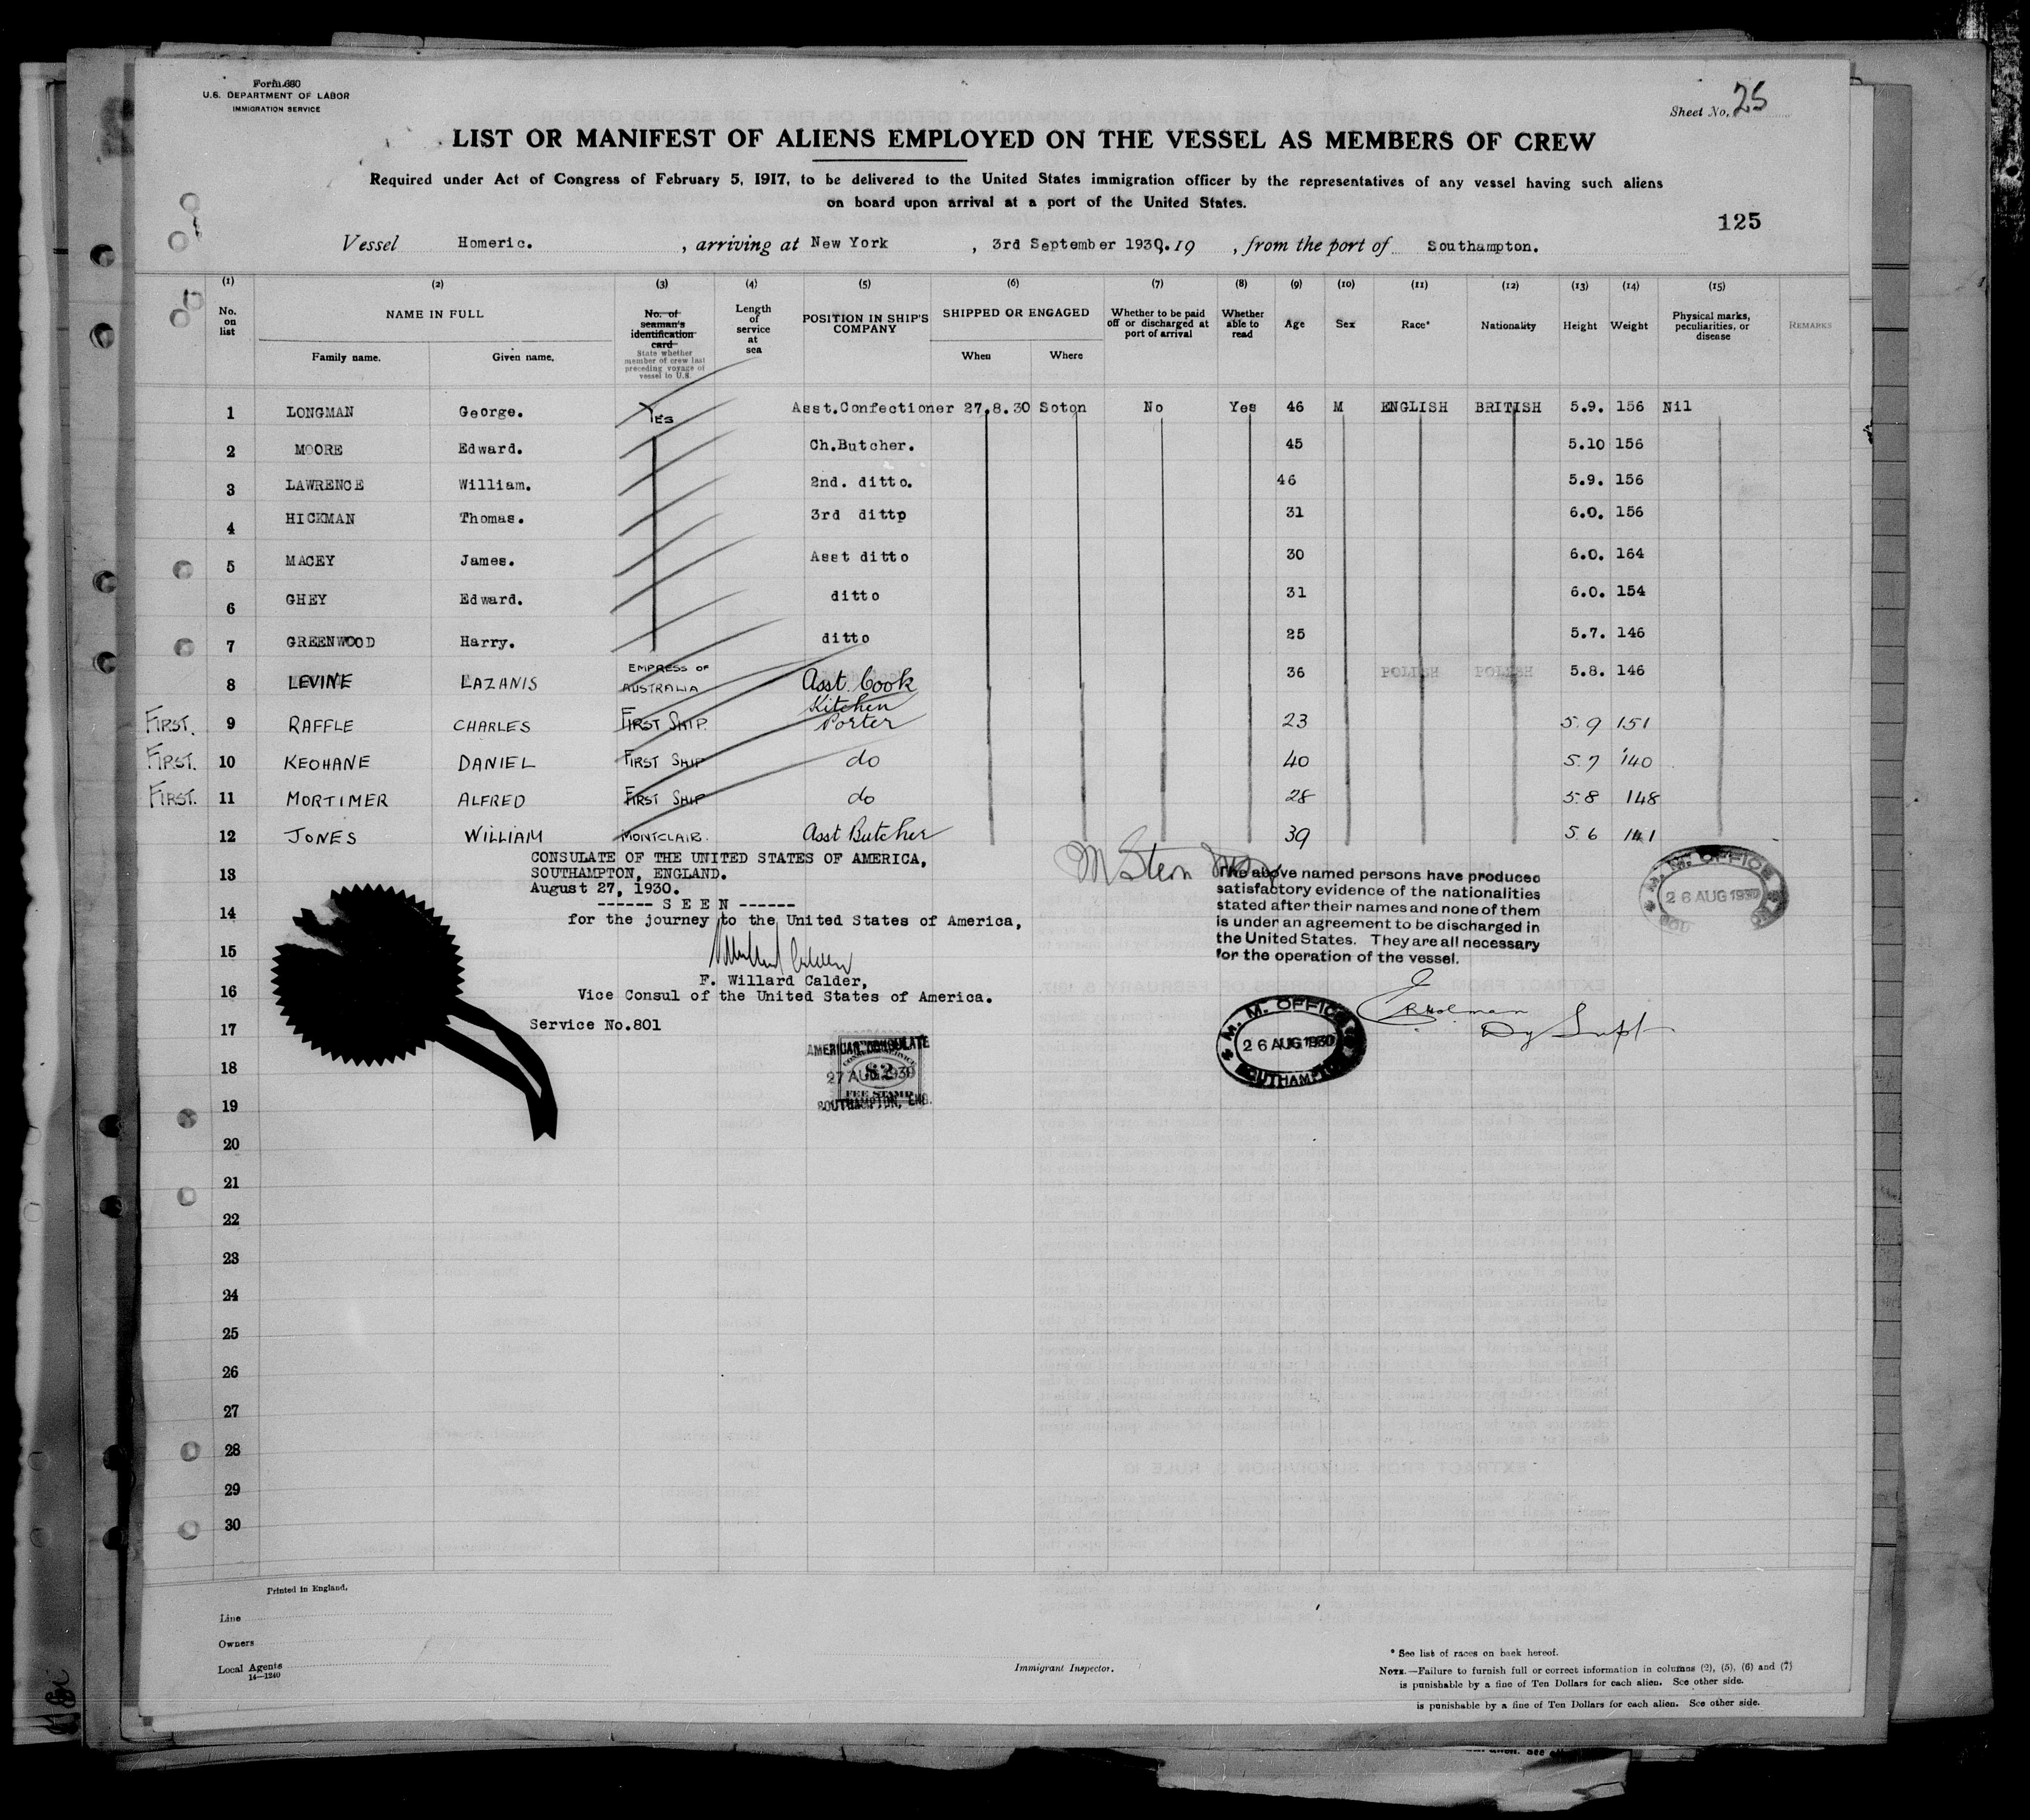 Form 680
U.S. DEPARTMENT OF LABOR
IMMIGRATION SERVICE
Sheet No. 25
LIST OR MANIFEST OF ALIENS EMPLOYED ON THE VESSEL AS MEMBERS OF CREW
Required under Act of Congress of February 5, 1917, to be delivered to the United States immigration officer by the representatives of any vessel having such aliens
on board upon arrival at a port of the United States.
125
Vessel Homeric. , arriving at New York , 3rd September 1930.19 , from the port of Southampton.
(1) (2) (3) (4) (5) (6) (7) (8) (9) (10) (11) (12) (13) (14) (15)
No. on list NAME IN FULL Family name. Given name. No. of seaman's identification card State whether member of crew last preceding voyage of vessel to U.S. Length of service at sea POSITION IN SHIP'S COMPANY SHIPPED OR ENGAGED When Where Whether to be paid off or discharged at port of arrival Whether able to read Age Sex Race* Nationality Height Weight Physical marks, peculiarities, or disease REMARKS
1 LONGMAN George. YES Asst.Confectioner 27.8.30 Soton No Yes 46 M ENGLISH BRITISH 5.9. 156 Nil
2 MOORE Edward. Ch.Butcher. 45 5.10 156
3 LAWRENCE William. 2nd. ditto. 46 5.9. 156
4 HICKMAN Thomas. 3rd dittp 31 6.0. 156
5 MACEY James. Asst ditto 30 6.0. 164
6 GHEY Edward. ditto 31 6.0. 154
7 GREENWOOD Harry. ditto 25 5.7. 146
8 LEVINE LAZANIS EMPRESS OF AUSTRALIA Asst. Cook 36 POLISH POLISH 5.8. 146
FIRST. 9 RAFFLE CHARLES FIRST SHIP. Kitchen Porter 23 5.9 151
FIRST. 10 KEOHANE DANIEL FIRST SHIP do 40 5.7 140
FIRST. 11 MORTIMER ALFRED FIRST SHIP do 28 5.8 148
12 JONES WILLIAM MONTCLAIR. Asst Butcher 39 5.6 141
13
14
15
16
17
18
19
20
21
22
23
24
25
26
27
28
29
30
CONSULATE OF THE UNITED STATES OF AMERICA,
SOUTHAMPTON, ENGLAND.
August 27, 1930.
------ S E E N ------
for the journey to the United States of America,
F. Willard Calder,
Vice Consul of the United States of America.
Service No.801
AMERICAN CONSULATE
27 AUG 1930
$2
FEE STAMP
SOUTHAMPTON, ENG.
M Stern
The above named persons have produced
satisfactory evidence of the nationalities
stated after their names and none of them
is under an agreement to be discharged in
the United States. They are all necessary
for the operation of the vessel.
M. M. OFFICE
26 AUG 1930
SOUTHAMPTON
Dy Supt
M. M. OFFICE
26 AUG 1930
Printed in England.
Line
Owners
Local Agents
14—1240
Immigrant Inspector.
* See list of races on back hereof.
NOTE.—Failure to furnish full or correct information in columns (2), (5), (6) and (7)
is punishable by a fine of Ten Dollars for each alien. See other side.
is punishable by a fine of Ten Dollars for each alien. See other side.